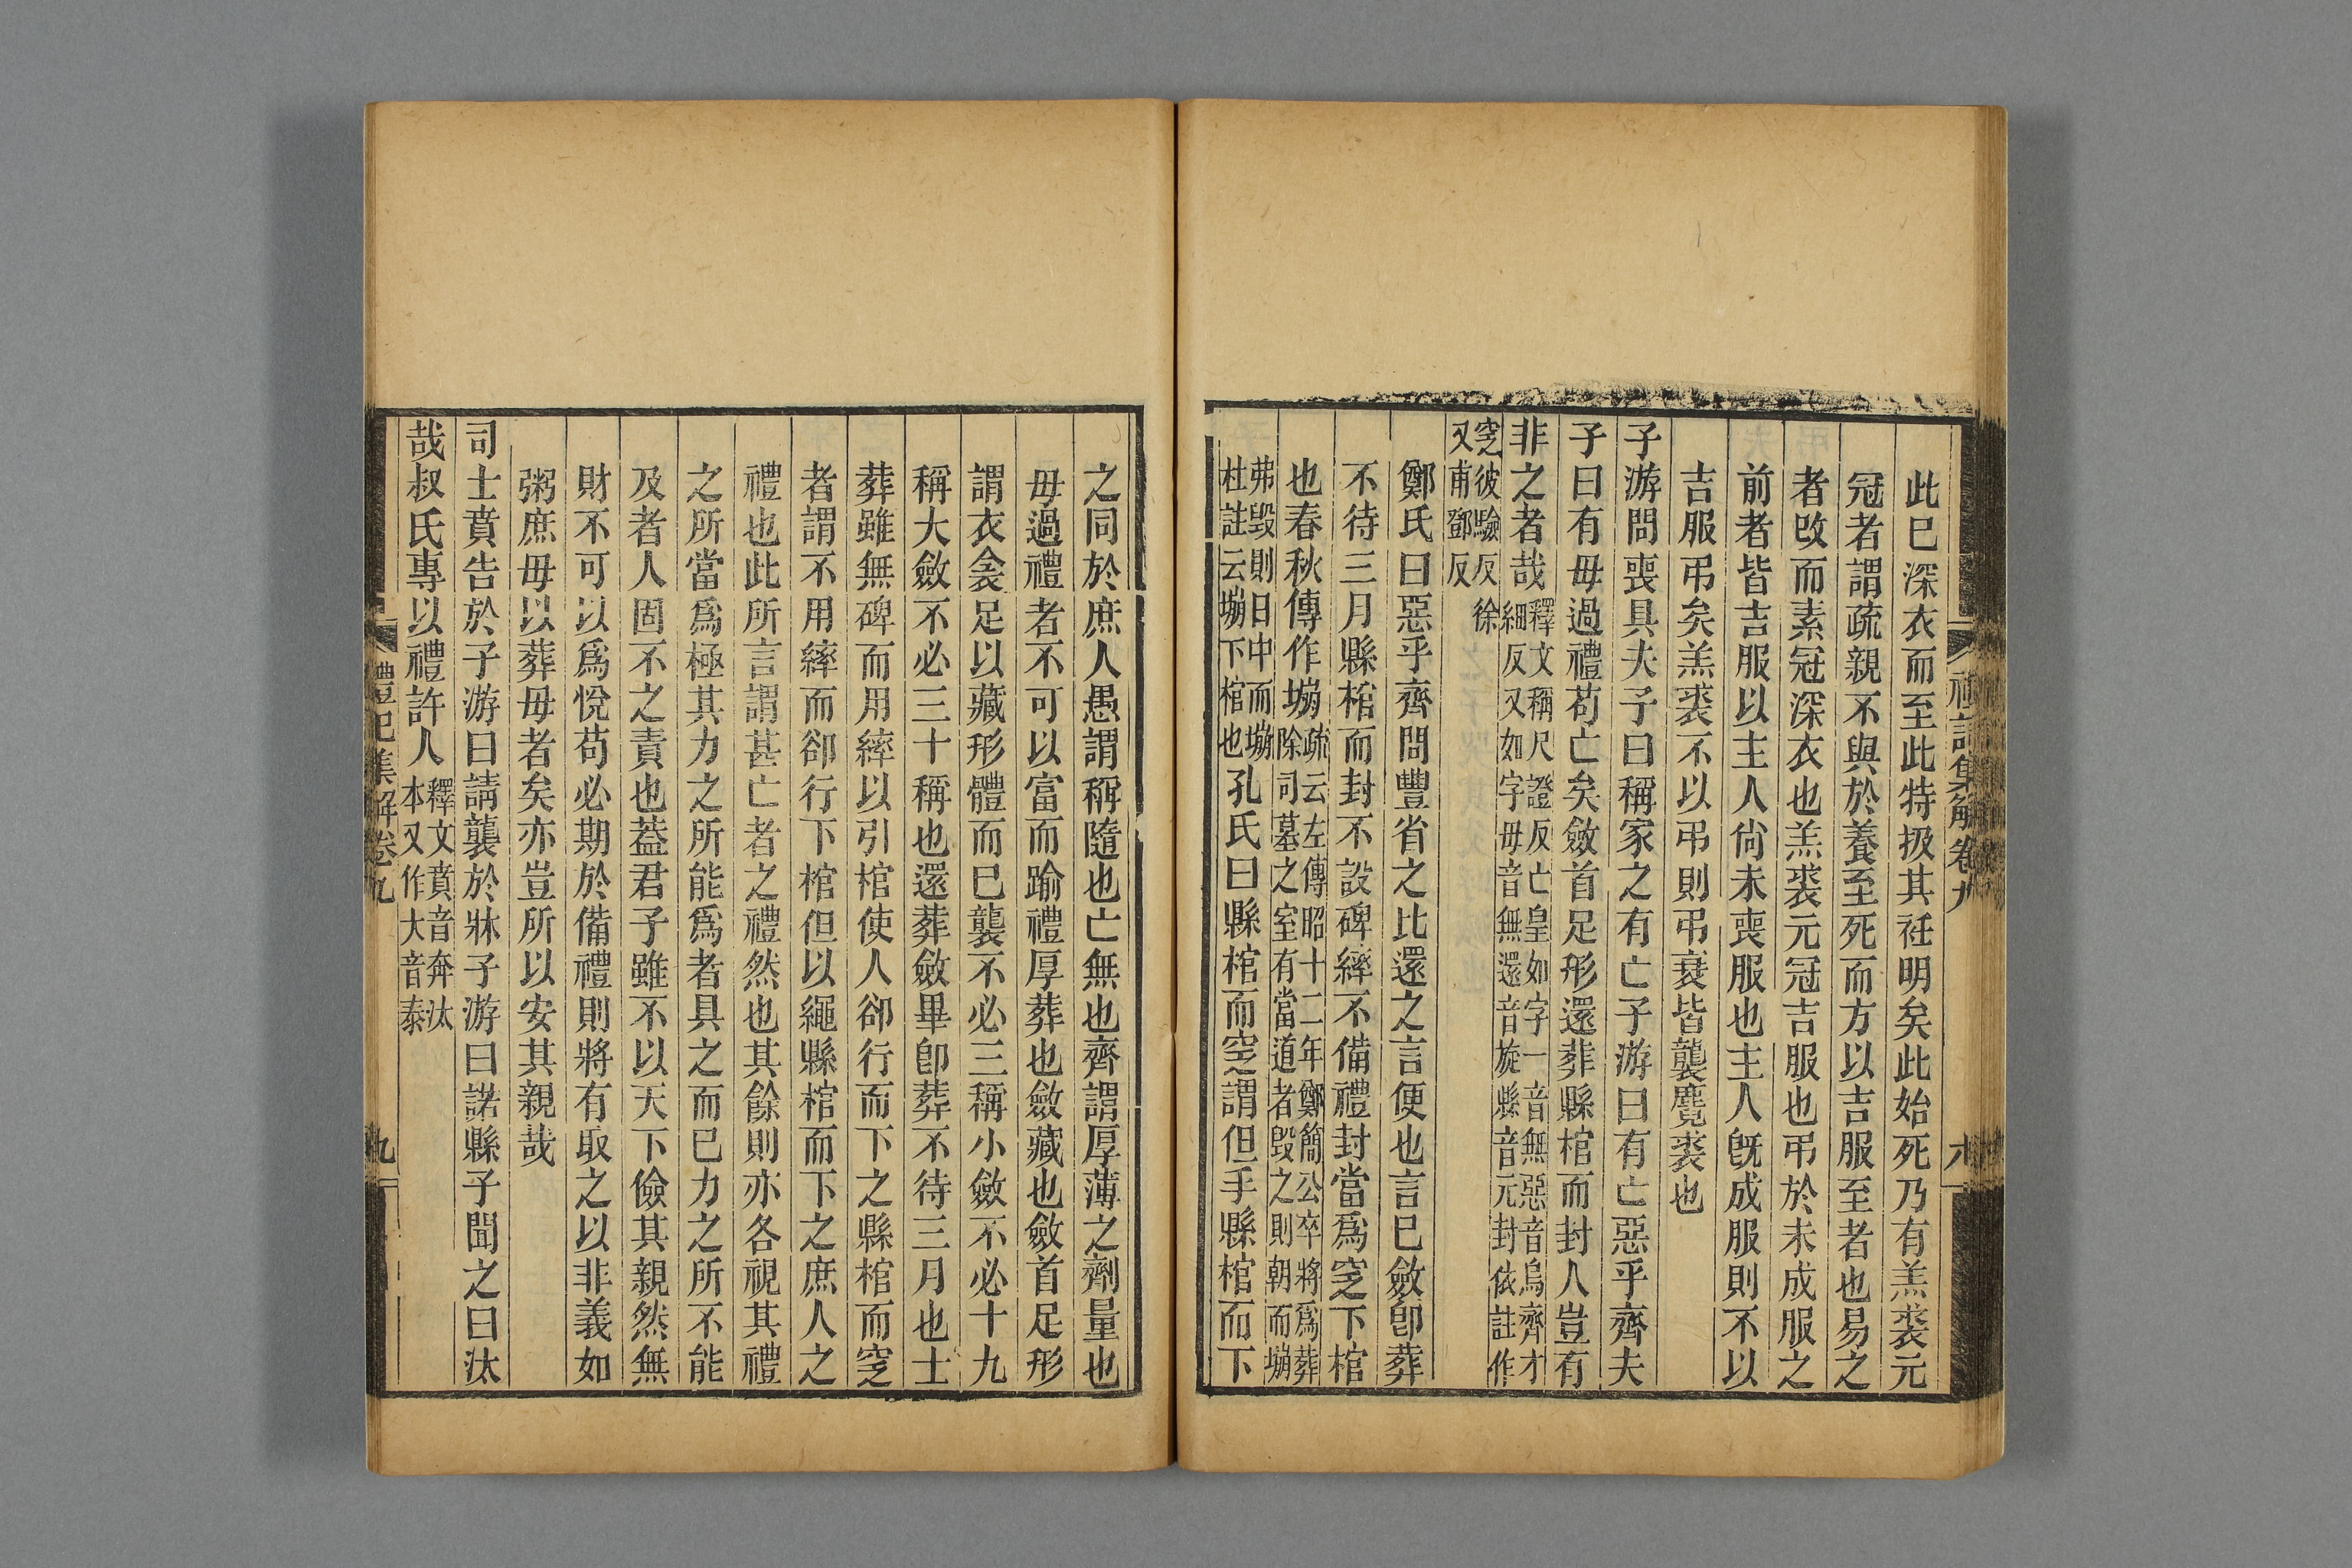 禮記集解卷九
此巳深衣而至此特扱其衽明矣此始死乃有羔裘元
冠者謂疏親不與於養至死而方以吉服至者也易之
者改而素冠深衣也羔裘元冠吉服也弔於未成服之
前者皆吉服以主人尙未喪服也主人旣成服則不以
吉服弔矣羔裘不以弔則弔衰皆襲麑裘也
子游問喪具夫子曰稱家之有亡子游曰有亡惡乎齊夫
子曰有毋過禮苟亡矣斂首足形還葬縣棺而封人豈有
非之者哉釋文稱尺證反亡皇如字一音無惡音烏齊才
細反又如字毋音無還音旋縣音元封依註作
窆彼驗反徐
又甫鄧反
鄭氏曰惡乎齊問豐省之比還之言便也言巳斂卽葬
不待三月縣棺而封不設碑繂不備禮封當爲窆下棺
也春秋傳作塴疏云左傳昭十二年鄭簡公卒將爲葬
除司墓之室有當道者毀之則朝而塴
弗毀則日中而塴
杜註云塴下棺也孔氏曰縣棺而窆謂但手縣棺而下
之同於庶人愚謂稱隨也亡無也齊謂厚薄之劑量也
毋過禮者不可以富而踰禮厚葬也斂藏也斂首足形
謂衣衾足以藏形體而巳襲不必三稱小斂不必十九
稱大斂不必三十稱也還葬斂畢卽葬不待三月也士
葬雖無碑而用繂以引棺使人郤行而下之縣棺而窆
者謂不用繂而郤行下棺但以繩縣棺而下之庶人之
禮也此所言謂甚亡者之禮然也其餘則亦各視其禮
之所當爲極其力之所能爲者具之而巳力之所不能
及者人固不之責也葢君子雖不以天下儉其親然無
財不可以爲悅苟必期於備禮則將有取之以非義如
粥庶母以葬母者矣亦豈所以安其親哉
司士賁告於子游曰請襲於牀子游曰諾縣子聞之曰汰
哉叔氏專以禮許人釋文賁音奔汰
本又作大音泰
禮記集解卷九
九